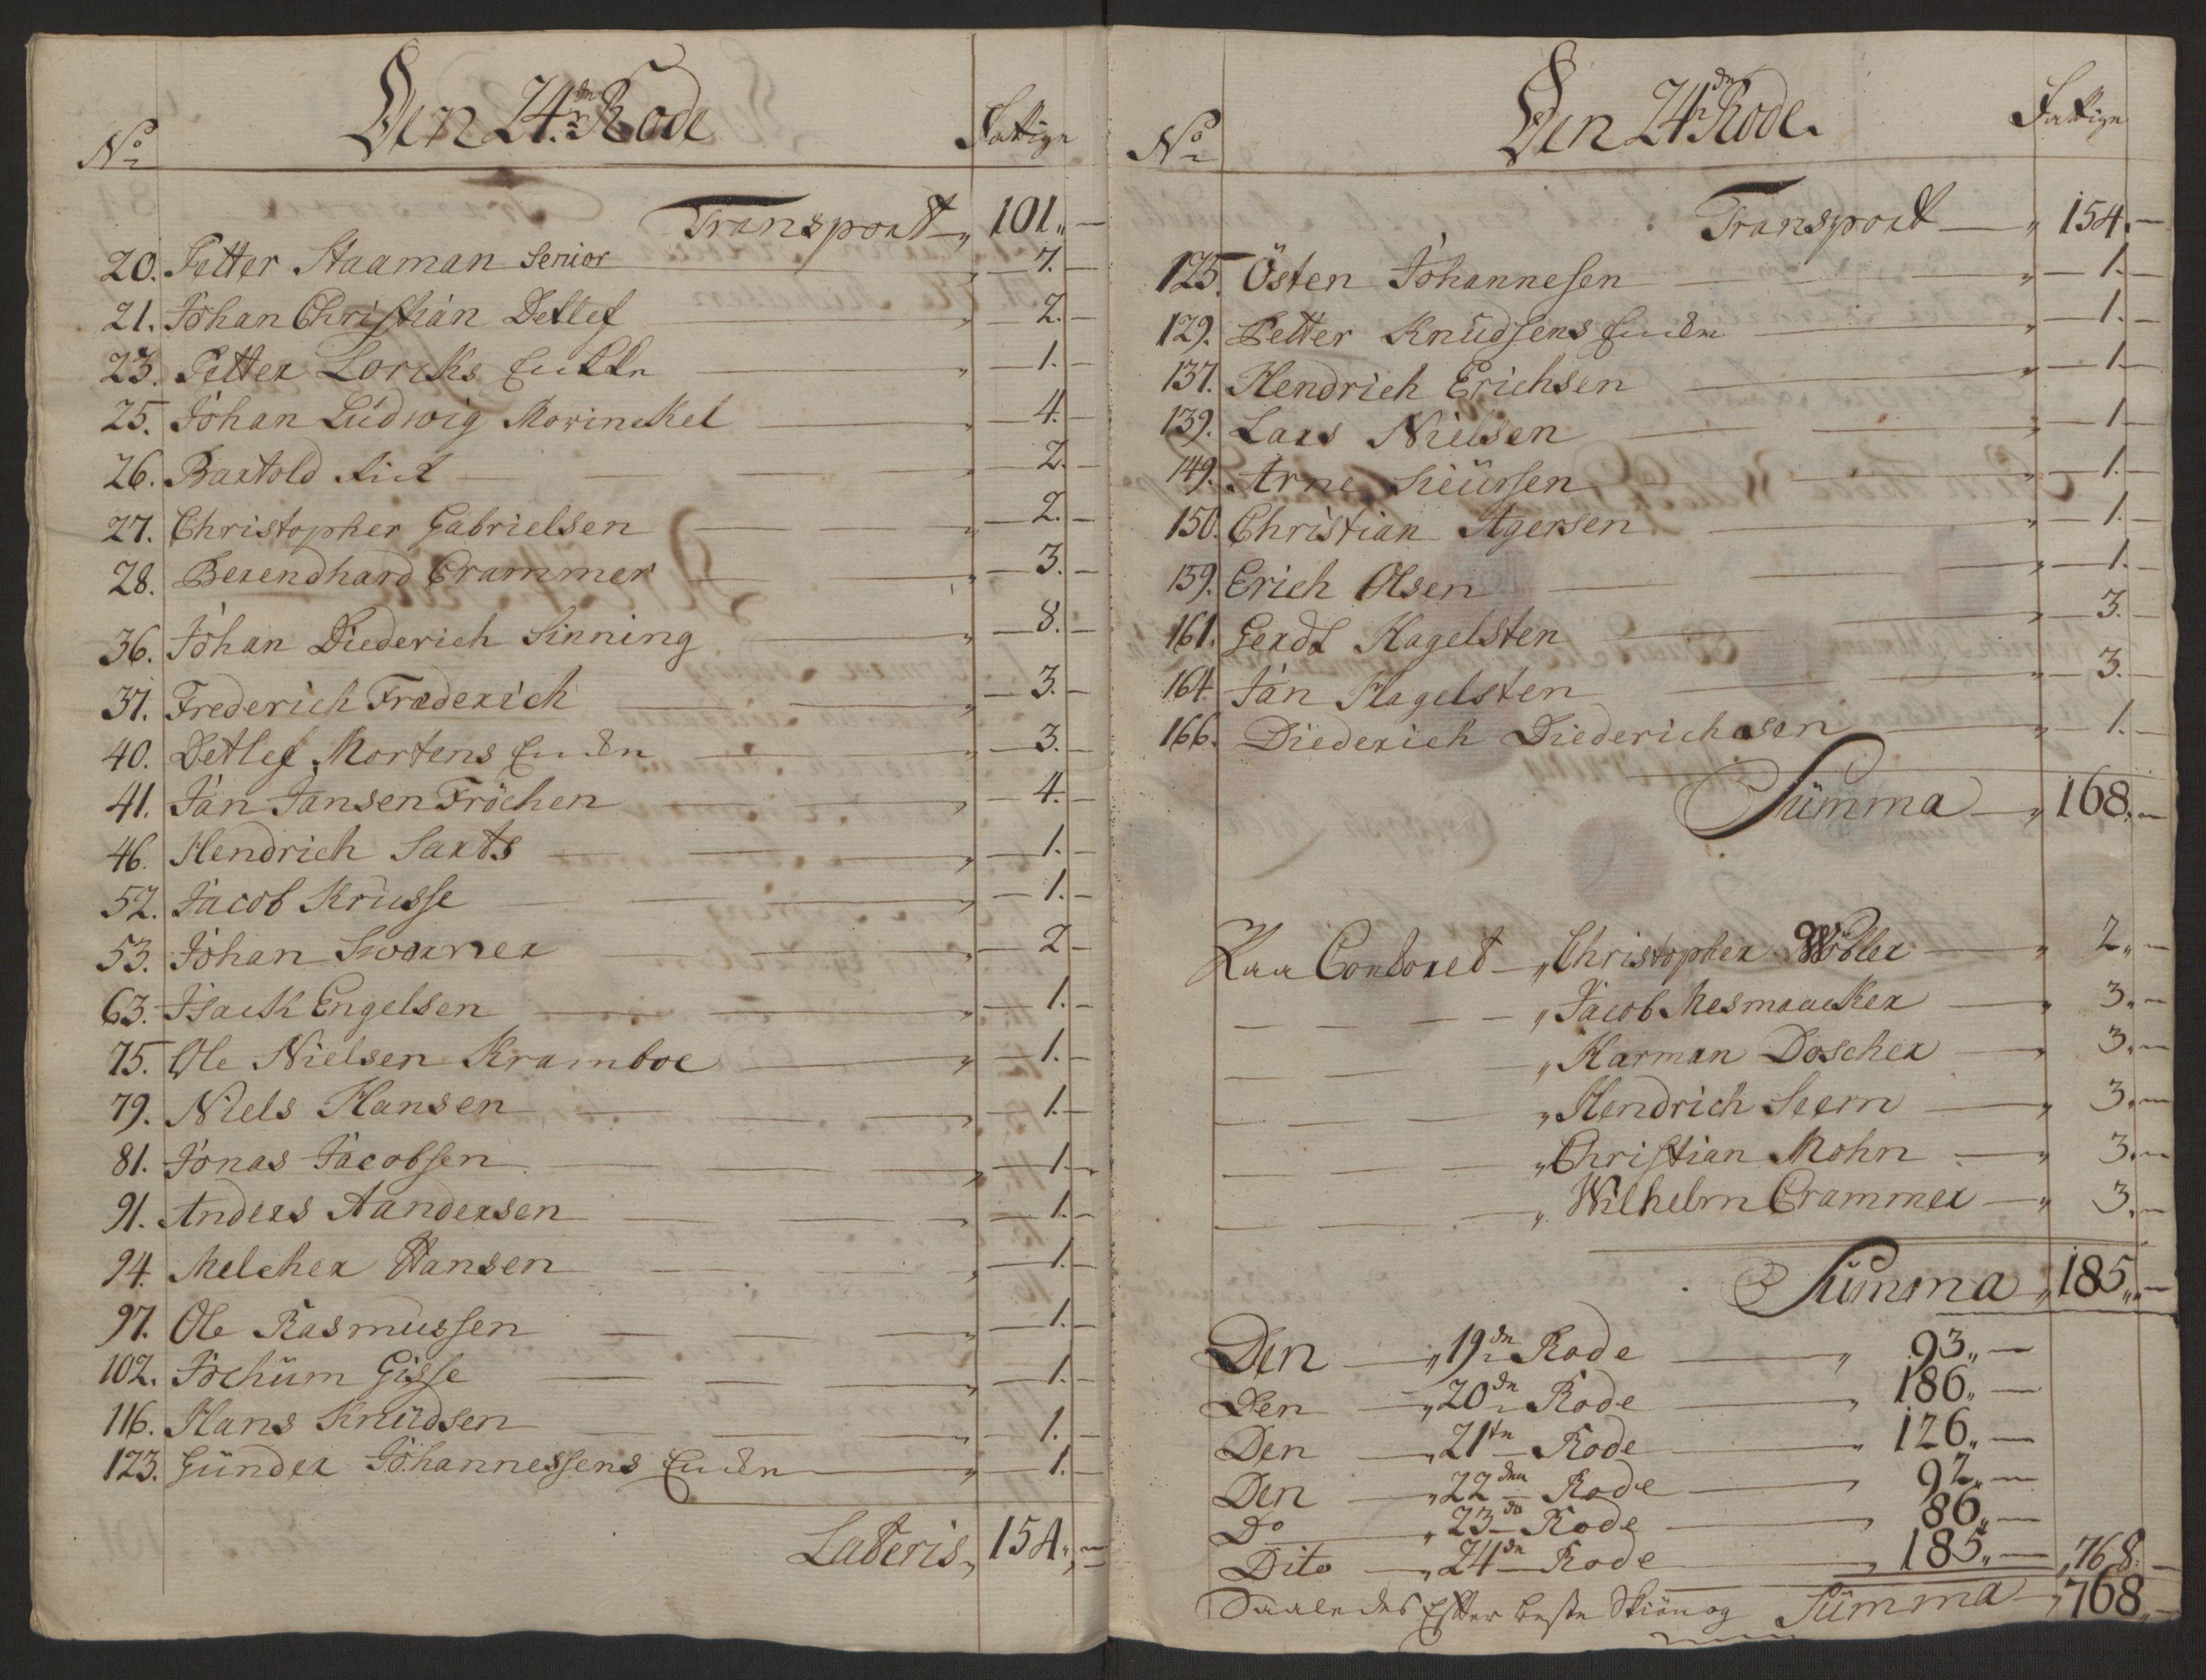 Den 24.dn Rode
No Fattige
Transport 101.
20. Petter Staaman Senior 7.
21. Johan Christian Detlef 2.
23. Petter Lorcks Encken 1.
25. Johan Ludwig Morinckel 4.
26. Bartold 2.
27. Christopher Gabrielsen 2.
28. Berendhard Crammer 3.
36. Johan Diederich Sinning 8.
37. Frederich Frederich 3.
40. Detlef Mortens Encken 3.
41. Jan Jansen Fröchen 4.
46. Hendrich Sarts 1.
52. Jacob Krusse 1.
53. Johan Sworner 2
63. Isack Engelsen 1.
75. Ole Nielsen Kramboe 1.
79. Niels Hansen 1.
81. Jonas Jacobsen 1.
91. Anders Aandersen 1.
94. Melcher Hansen 1.
97. Ole Rasmussen 1.
102. Jochüm Gisse 1.
116. Hans Knüdsen 1.
123. Günder Johannessens Encken 1.
Lateris 154.
Den 24dn Rode.
No Fattige
Transport 154.
125. Östen Johannesen 1.
129. Petter Knüdsens Encken 1.
137. Hendrich Erichsen 1.
139. Lars Nielsen 1.
149. Arne Siüssen 1.
150. Christian Agersen 1.
159. Erich Olsen 1.
161. Gerdt Hagelsten 3.
164. Jan Hagelsten 3.
166. Diederich Diederichsen 1.
Sümma 168.
Paa Contoret Christopher Wöbler 2
Jacob Mesmaacker 3
Harman Doscher 3
Hendrich Seem 3
Christian Mohn 3
Wilhelm Crammer 3
Summa 185
Den 19dn Rode 93
Den 20dn Rode 186
Den 21tn Rode 126
Den 22den Rode 92
Do 23dn Rode 86
Dito 24dn Rode 185 768
Saaledes Efter beste Skiönog Sümma 768